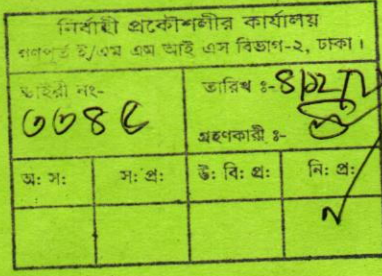 নির্বাহী প্রকৌশলীর কার্যালয়
গণপূর্ত ই/এম এম আই এস বিভাগ-২, ঢাকা।
ডাইরী নং-
৩৩৪৫
তারিখ ঃ-
গ্রহণকারী ঃ-
অ: স:
স: প্র:
উ: বি: প্র:
নি: প্র: